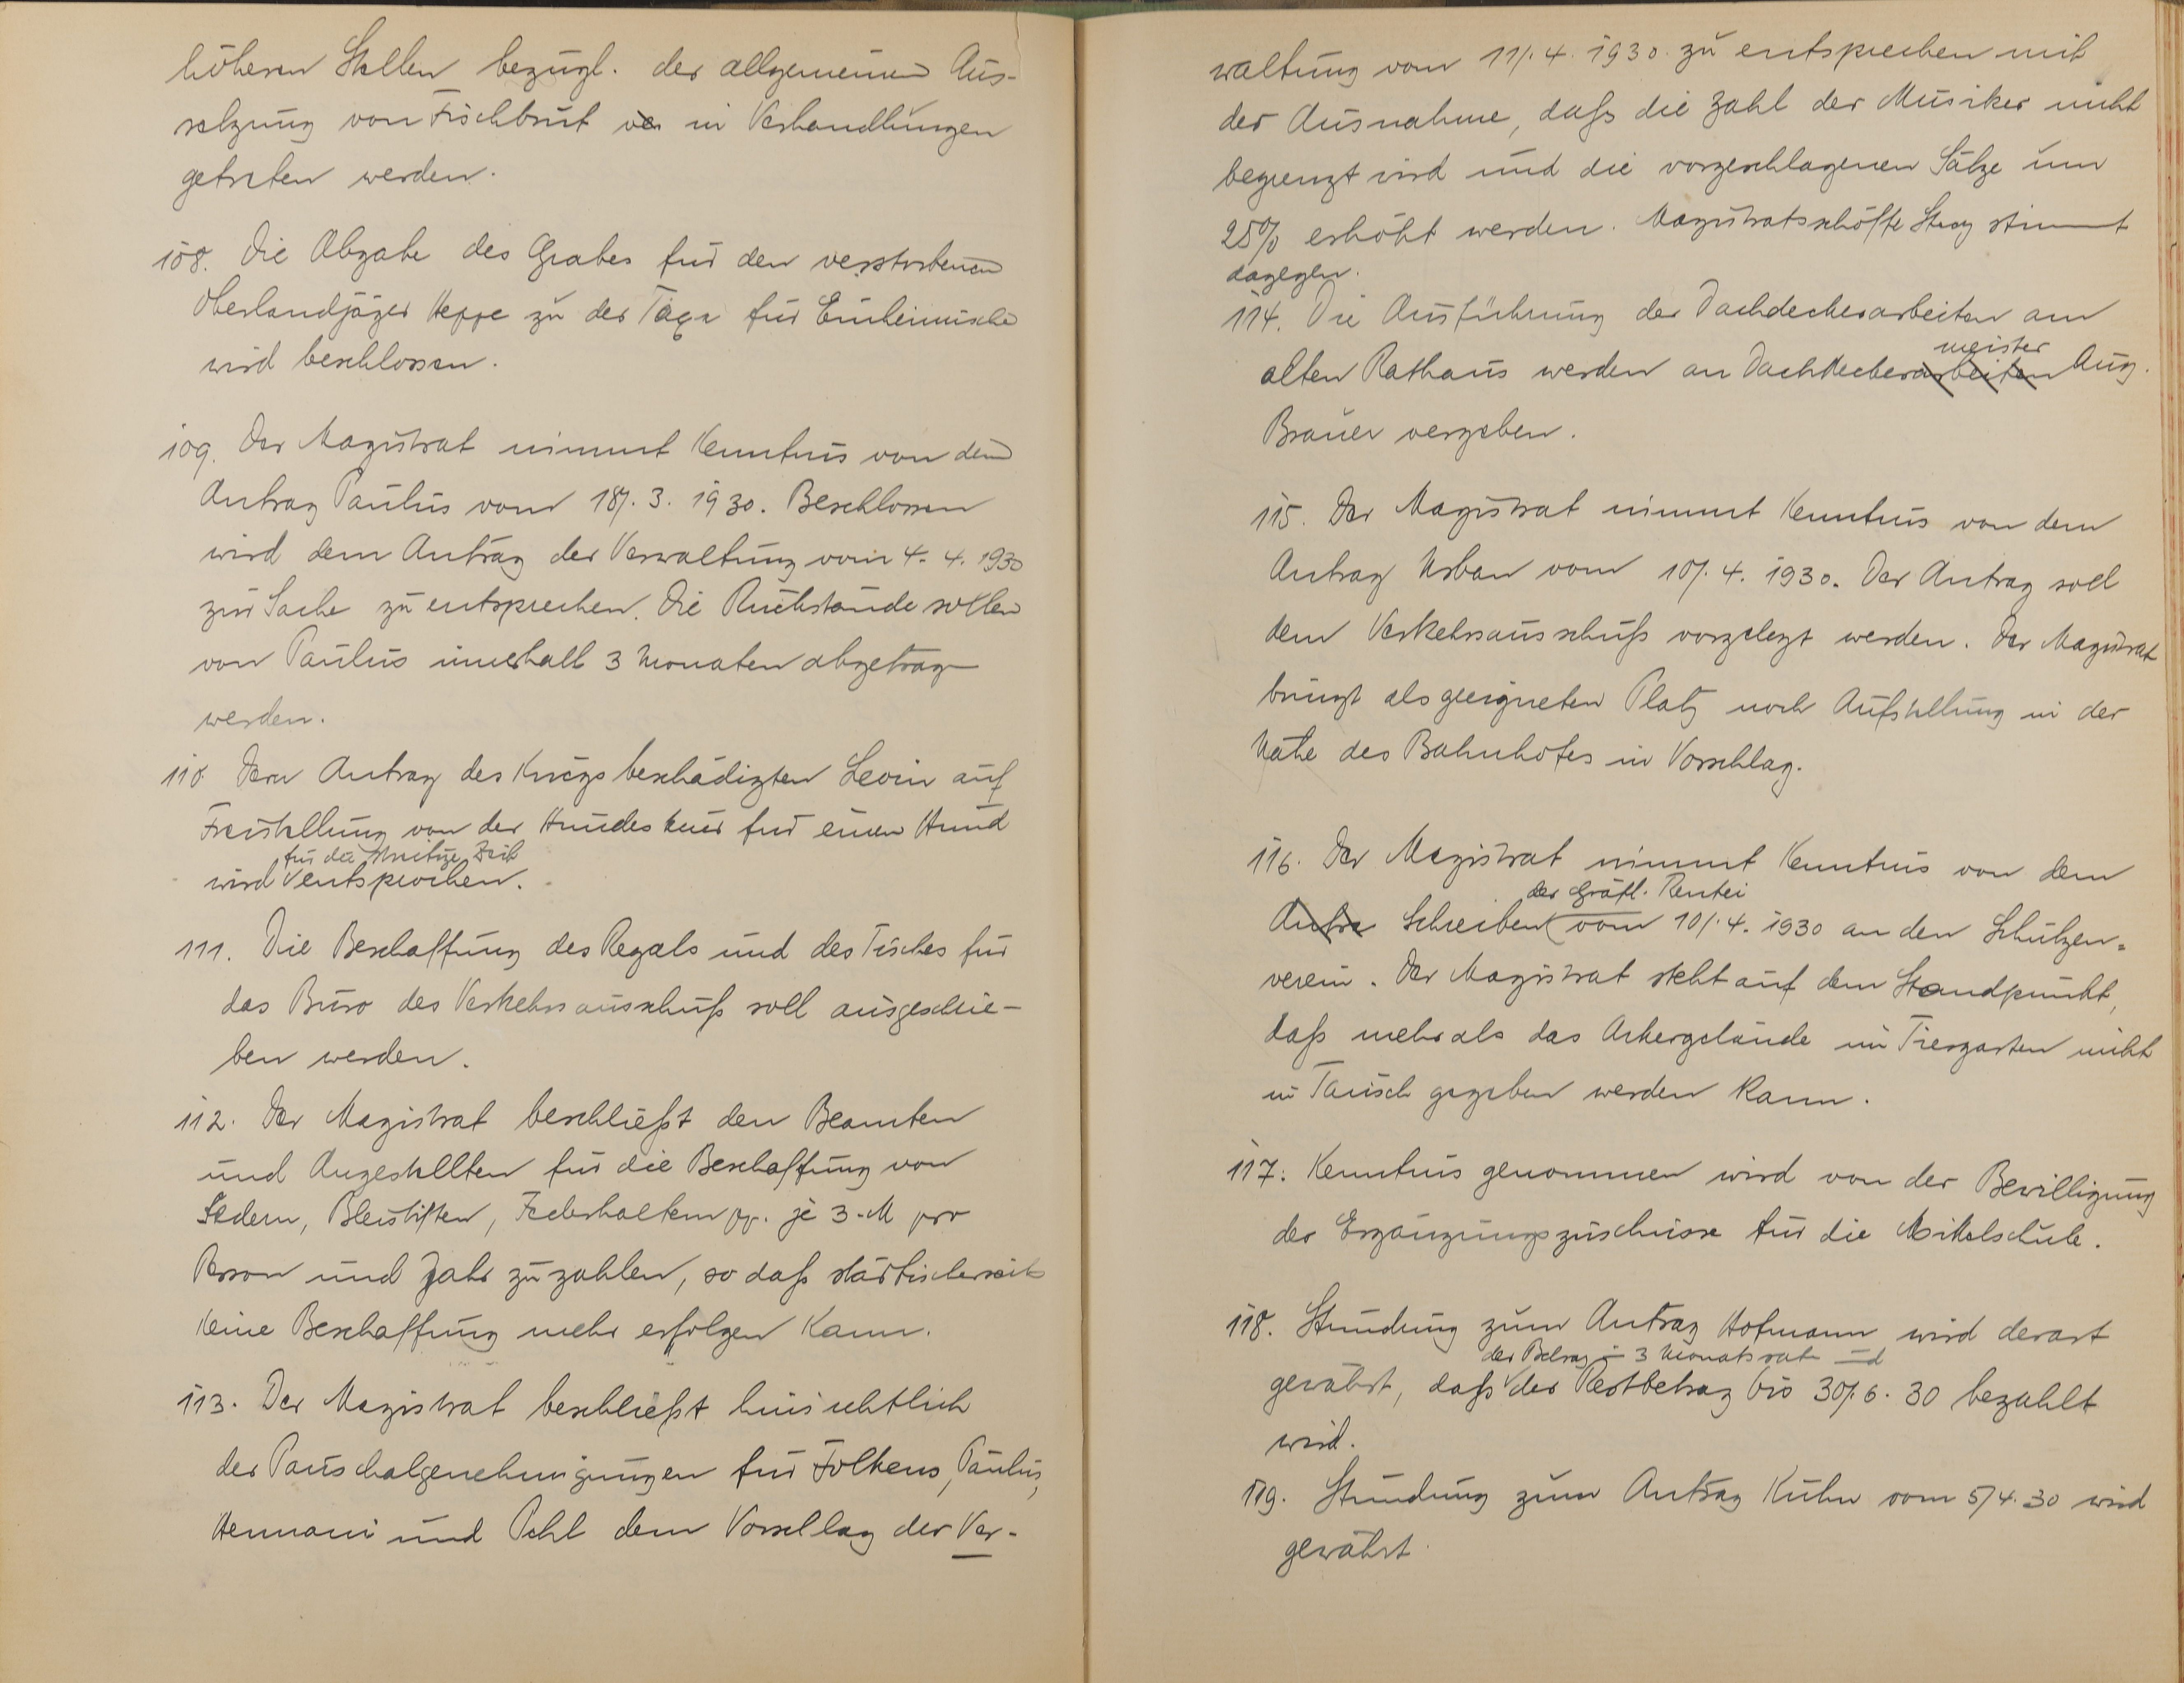 höheren Stellen bezügl. der allgemeinen Aus-
setzung von Fischbrut ver in Verhandlungen
getreten werden.
108. Die Abgabe des Grabes für den verstorbenen
Oberlandjäger Heppe zu der Taxe für Einheimische
wird beschlossen.
109. Der Magistrat nimmt Kenntnis von dem
Antrag Paulus vom 18/. 3. 1930. Beschlossen
wird dem Antrag der Verwaltung vom 4. 4. 1930
zur Sache zu entsprechen. Die Rückstände sollen
von Paulus innerhalb 3 Monaten abgetragen
werden.
110 Dem Antrag des Kriegsbeschädigten Levin auf
Freistellung von der Hundesteuer für einen Hund
für die Zeit
wird entsprochen.
111. Die Beschaffung des Regals und des Tisches für
das Büro des Verkehrsausschuß soll ausgeschrie-
ben werden.
112. Der Magistrat beschließt den Beamten
und Angestellten für die Beschaffung von
Federn, Bleistiften, Federhaltern pp. je 3.-M pro
Person und Jahr zu zahlen, so daß städtischerseits
keine Beschaffung mehr erfolgen kann.
113. Der Magistrat beschließt hinsichtlich
der Pauschalgenehmigungen für Folkens, Paulus,
Hermani und Pohl dem Vorschlag der Ver-
waltung vom 11/. 4. 1930 zu entsprechen mit
der Ausnahme, daß die Zahl der Musiker nicht
begrenzt wird und die vorgeschlagenen Sätze um
25% erhöht werden. Magistratsschöffe stimmt
dagegen.
114. Die Ausführung der Dachdeckerarbeiten am
meister
alten Rathaus werden an Dachdeckerarbeiten Aug.
Brauer vergeben.
115. Der Magistrat nimmt Kenntnis von dem
Antrag Urban vom 10/. 4. 1930. Der Antrag soll
dem Verkehrsausschuß vorgelegt werden. Der Magistrat
bringt als geeigneten Platz noch Aufstellung in der
Nähe des Bahnhofes in Vorschlag.
116. Der Magistrat nimmt Kenntnis von dem
der Gräfl. Rentei
Antra Schreiben vom 10/. 4. 1930 an den Schützen-
verein. Der Magistrat steht auf dem Standpunkt,
daß mehr als das Ackergelände im Tiergarten nicht
in Tausch gegeben werden kann.
117. Kenntnis genommen wird von der Bewilligung
der Ergänzungszuschüsse für die Mittelschule.
118. Stundung zum Antrag Hofmann wird derart
der Betrag in 3 Monatsraten und
gewährt, daß der Restbetrag bis 30/. 6. 30 bezahlt
wird.
119. Stundung zum Antrag Kühn vom 5/4. 30 wird
gewährt.